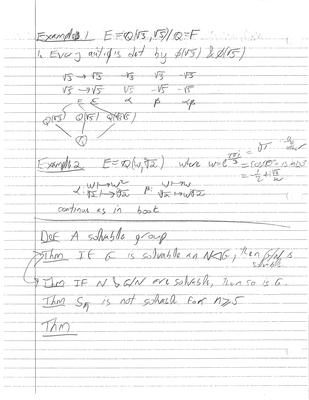 Example 1 E = Q(√3, √5) / Q = F
1. Every aut φ is det by φ(√3) & φ(√5)
√3 → √3 -√3 √3 -√3
√5 → √5 √5 -√5 -√5
ε α β αβ
Q(√3) Q(√5)
Q
Example 2 E = Q(w, ∛2) where w =
α: w ↦ w² β: w ↦ w
∛2 ↦ ∛2 ∛2 ↦ w∛2
continue as in book
Def A solvable group
Thm If G is solvable an N◁G, then G/N is
solvable
Thm If N & G/N are solvable, then so is G.
Thm Sn is not solvable for n≥5
Thm